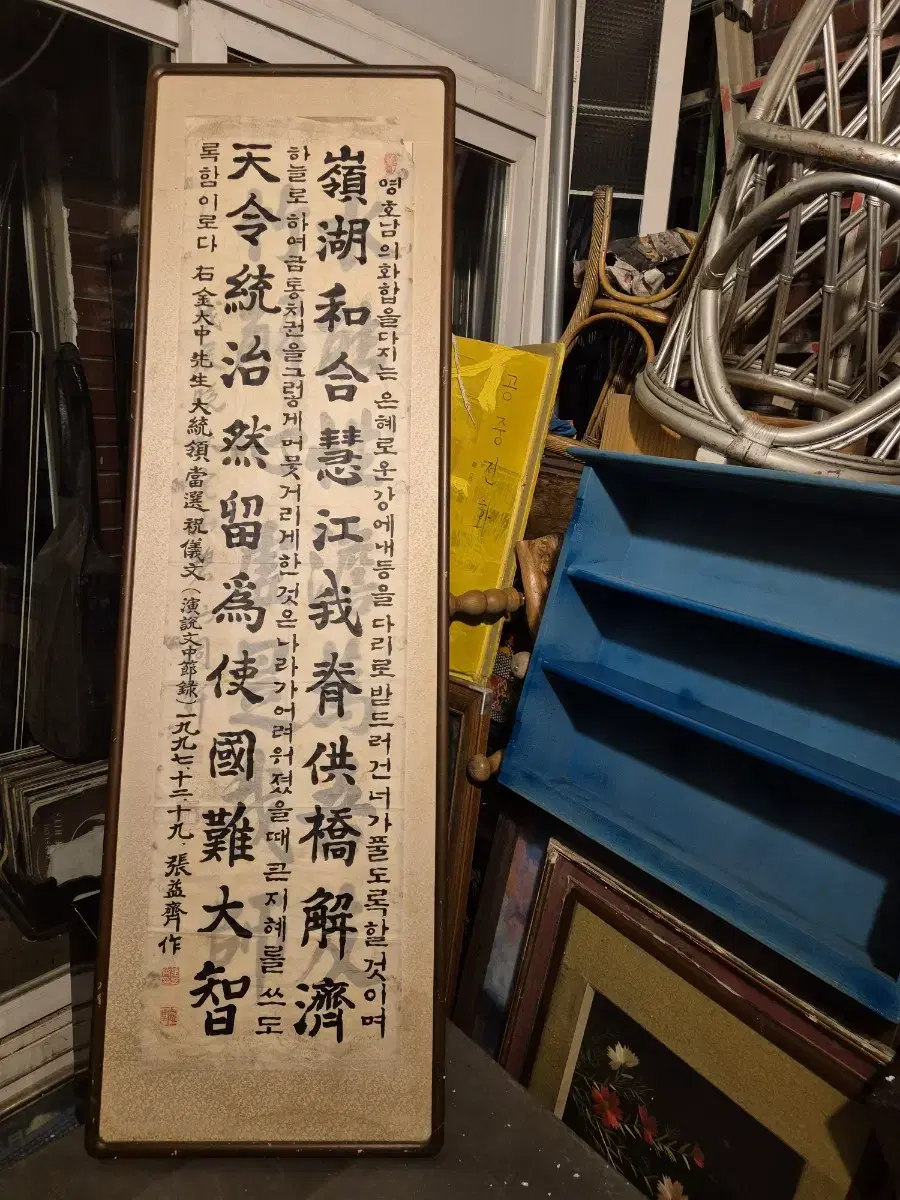 영호남의화합을다지는 은혜로운강에내등을 다리로받드러건너가풀도록할것이며
嶺湖和合慧江我脊供橋解濟
하늘로하여금통치권을그렇게머뭇거리게한것은나라가어려워졌을때 큰지혜를 쓰도
天令統治然留爲使國難大智
록함이로다 右金大中先生 大統領當選 祝儀文 (演說文中節錄) 一九九七.十二.十九. 張益齊作
공중전화